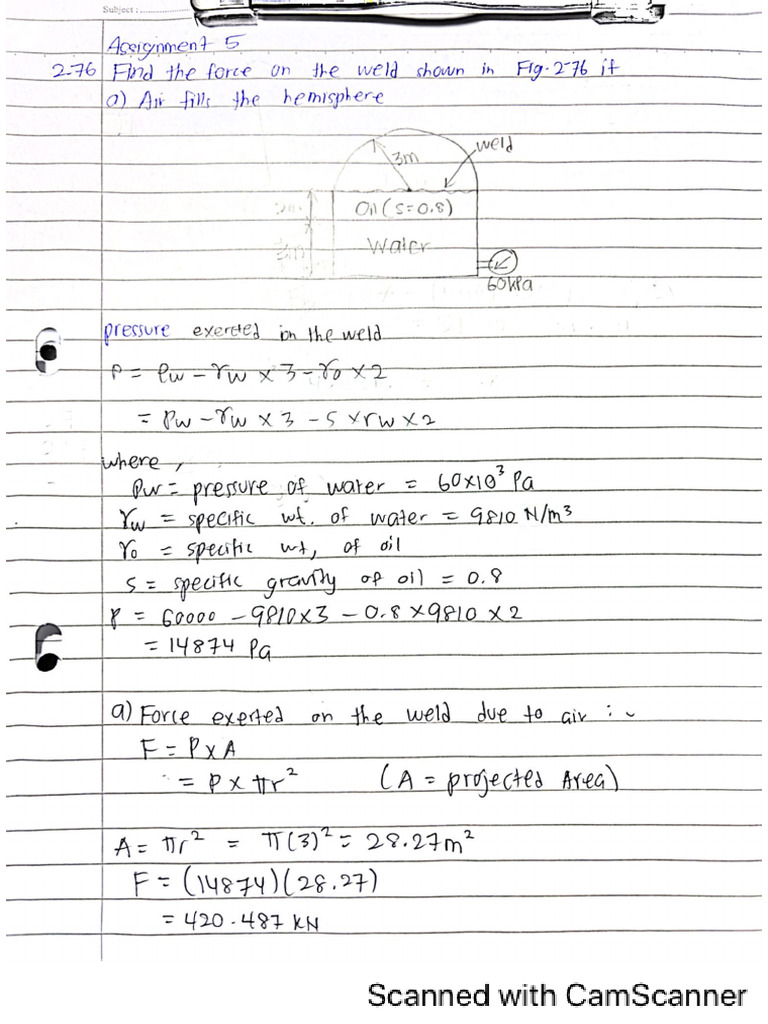 Subject :
Assignment 5
2.76 Find the force on the weld shown in Fig. 2-76 if
a) Air fills the hemisphere
weld
3m
2m
Oil (S=0.8)
Water
3m
60kPa
pressure exerted on the weld
P = Pw - γw × 3 - γo × 2
= Pw - γw × 3 - S × γw × 2
where,
Pw = pressure of water = 60×10³ Pa
γw = specific wt. of water = 9810 N/m³
γo = specific wt, of oil
S = specific gravity of oil = 0.8
P = 60000 - 9810×3 - 0.8×9810×2
= 14874 Pa
a) Force exerted on the weld due to air :~
F = P×A
= P × πr² (A = projected Area)
A = πr² = π(3)² = 28.27m²
F = (14874)(28.27)
= 420.487 KN
Scanned with CamScanner